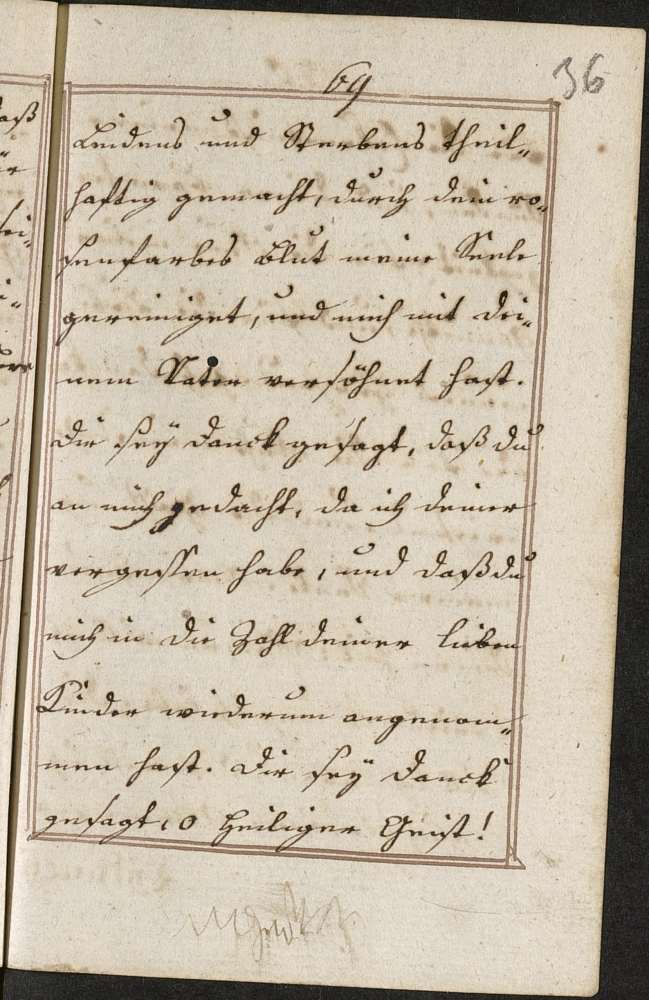 69
36
Leidens und Sterbens theil„
haftig gemacht, durch dein ro„
senfarbes Blut meine Seele
gereiniget, und mich mit dei„
nem Vater versöhnet hast.
Dir seÿ Danck gesagt, daß du
an mich gedacht, da ich deiner
vergessen habe, und daß du
mich in die Zahl deiner lieben
Kinder wiederum angenom„
men hast. Dir seÿ Danck
gesagt, o Heiliger Geist!